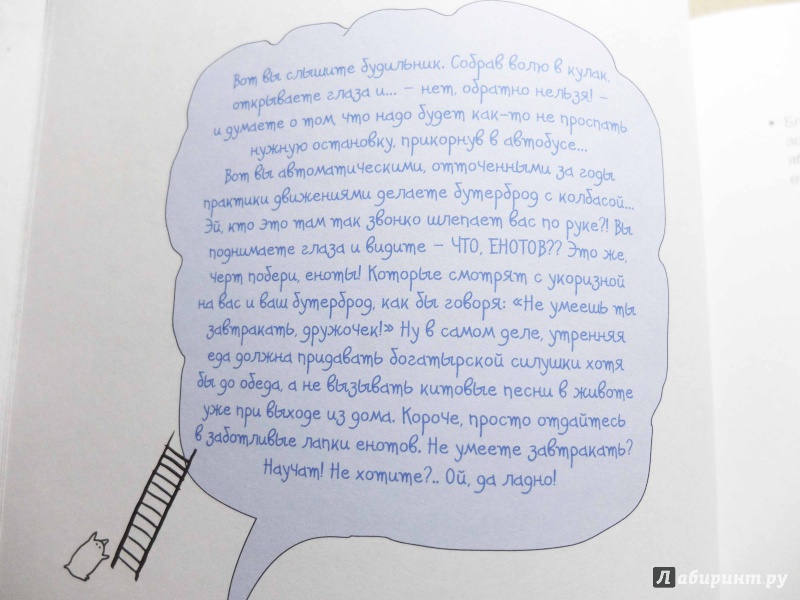 Вот вы слышите будильник. Собрав волю в кулак,
открываете глаза и... – нет, обратно нельзя! –
и думаете о том, что надо будет как-то не проспать
нужную остановку, прикорнув в автобусе...
Вот вы автоматическими, отточенными за годы
практики движениями делаете бутерброд с колбасой...
Эй, кто это там так звонко шлепает вас по руке?! Вы
поднимаете глаза и видите – ЧТО, ЕНОТОВ?? Это же,
черт побери, еноты! Которые смотрят с укоризной
на вас и ваш бутерброд, как бы говоря: «Не умеешь ты
завтракать, дружочек!» Ну в самом деле, утренняя
еда должна придавать богатырской силушки хотя
бы до обеда, а не вызывать китовые песни в животе
уже при выходе из дома. Короче, просто отдайтесь
в заботливые лапки енотов. Не умеете завтракать?
Научат! Не хотите?.. Ой, да ладно!
Лабиринт.ру